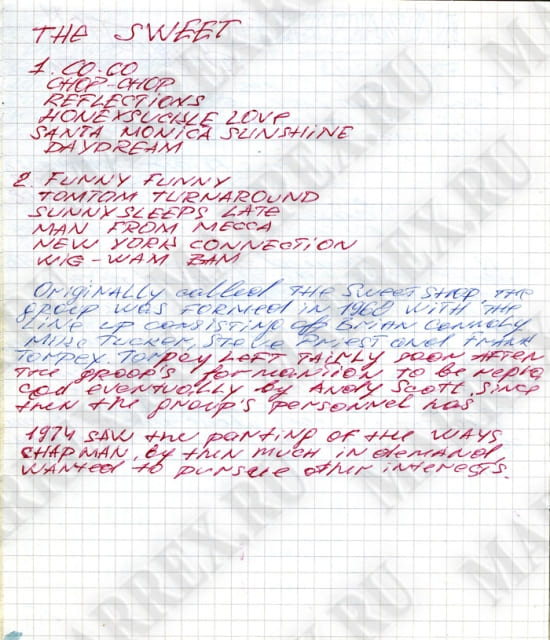 THE SWEET
1. CO-CO
CHOP-CHOP
REFLECTIONS
HONEXSUCKLE LOVE
SANTA MONICA SUNSHINE
DAYDREAM
2. FUNNY FUNNY
TOMTOM TURNAROUND
SUNNY SLEEPS LATE
MAN FROM MECCA
NEW YORK CONNECTION
WIG-WAM BAM
Originally called THE SWEET SHOP, THE
group was formed in 1968 with the
line up consisting of Brian Connoly
Mike Tucker, Steve Priest and Frank
Torpex. Torpey left fairly soon after
the group's formantion to be repla
ced eventually by Andy Scott. Since
then the group's personnel has
1974 saw the parting of the ways
Chapman, by then much in demand,
wanted to pursue other interests.
MARREX.RU